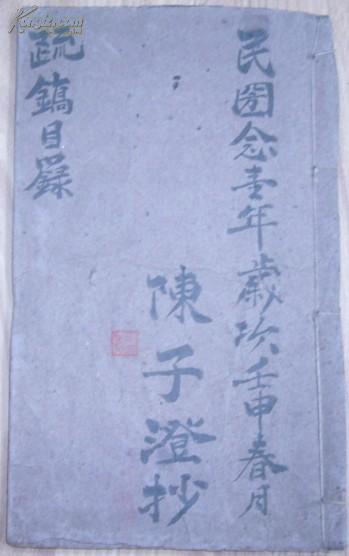 民國念壹年歲次壬申春月
陳子澄抄
疏鎬目錄